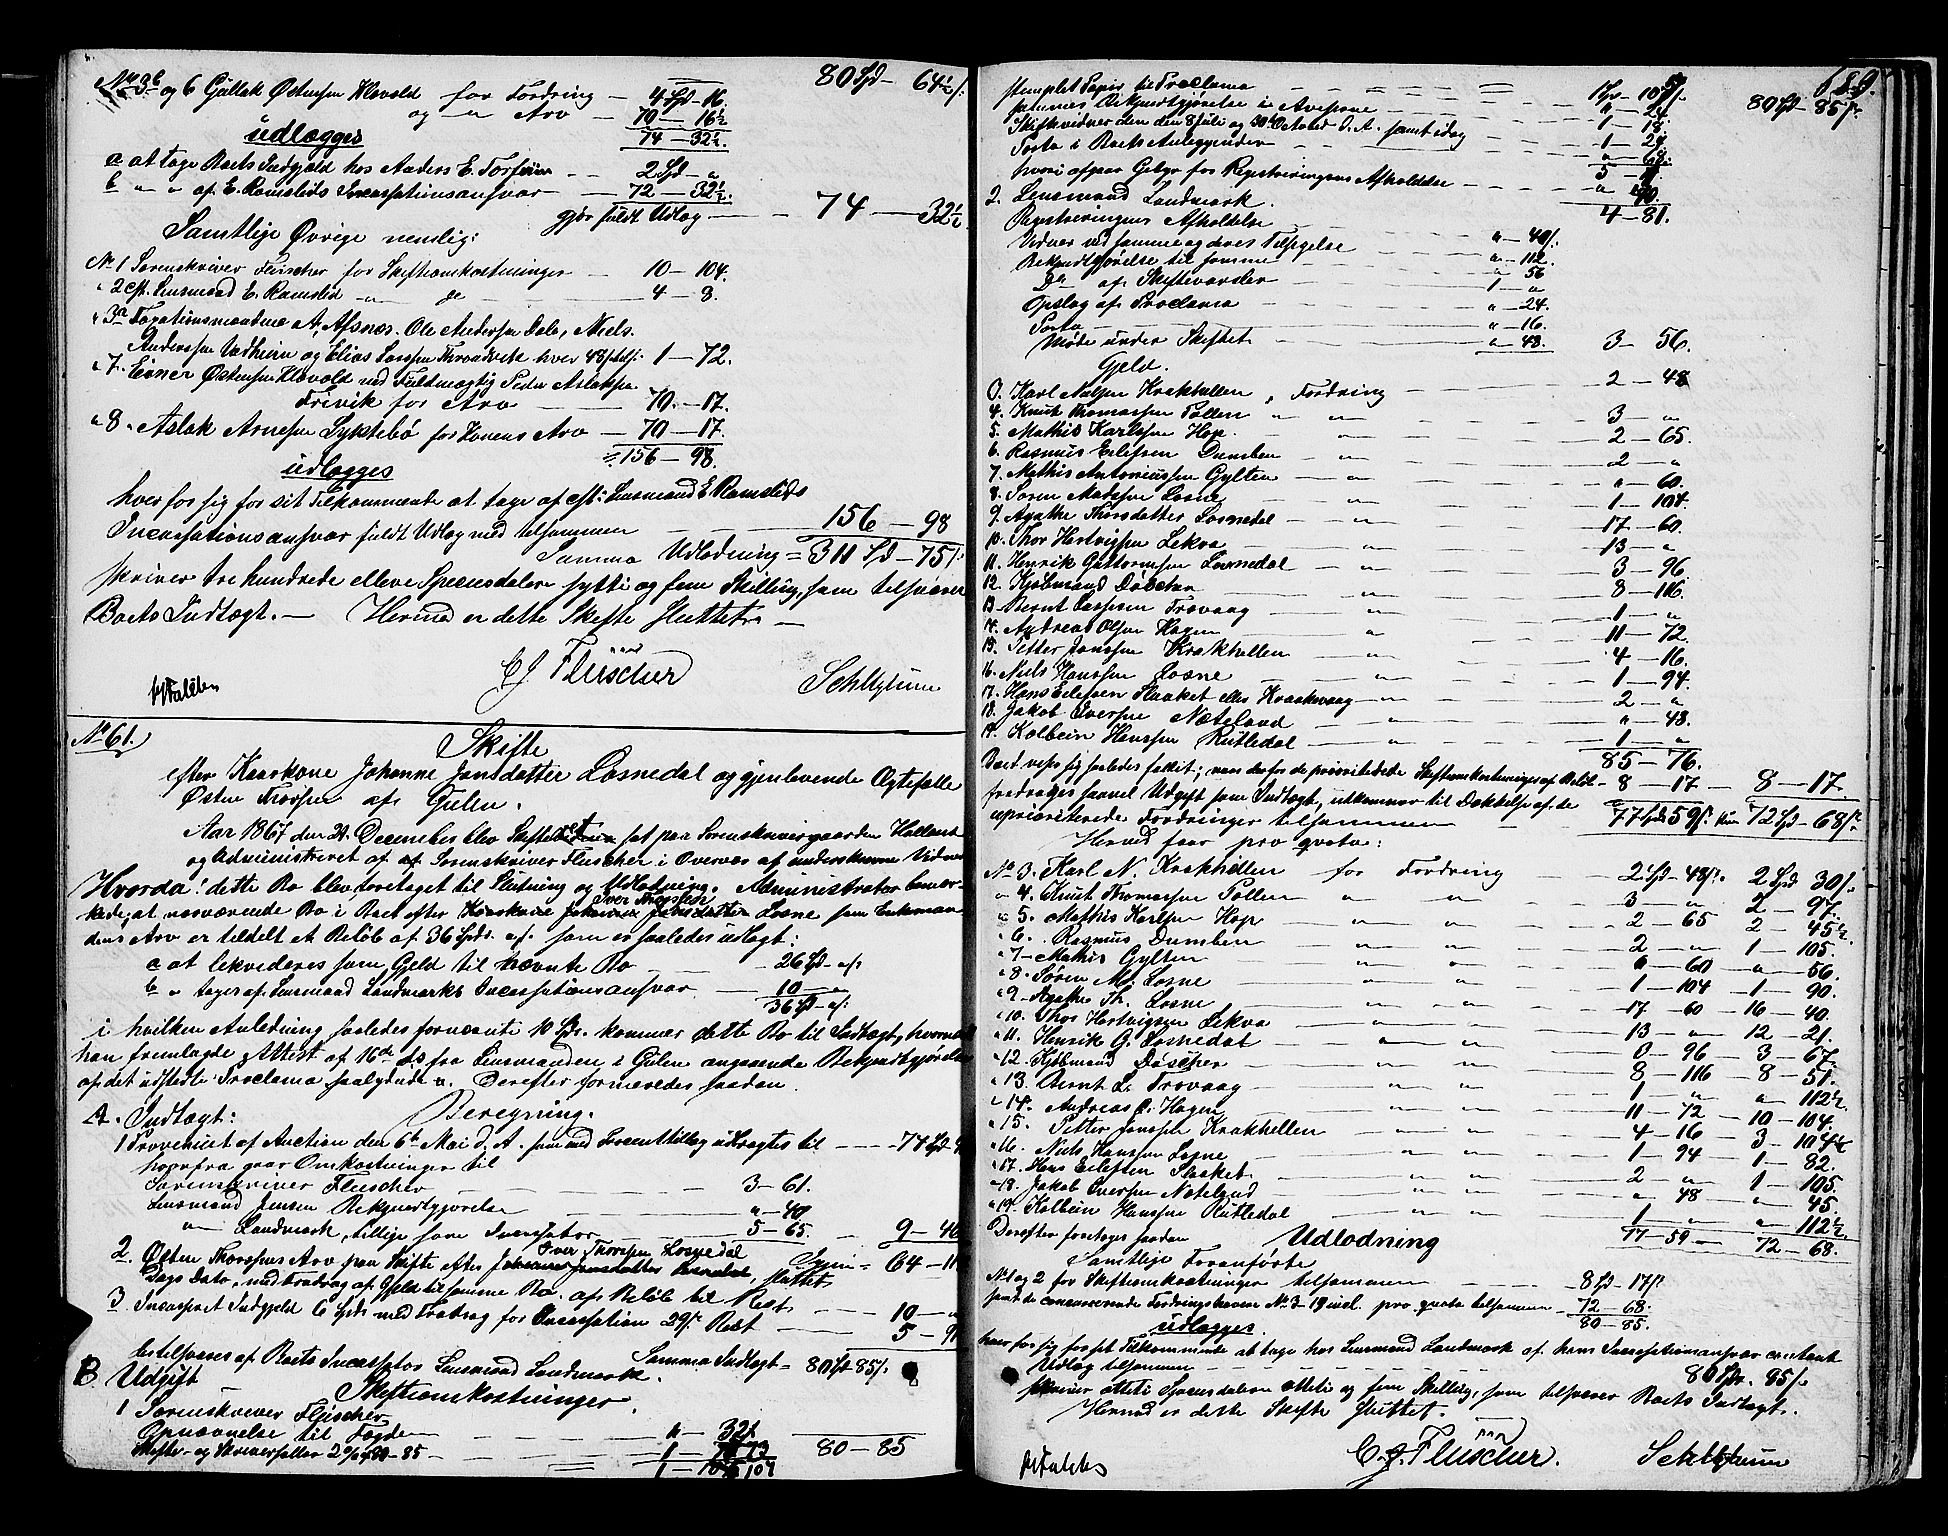 80 Spd - 64½ s.
No 3b og 6 Gullak Østensen Klovold for Fordring - 4 Spd - 16.
og " Arv - 70 - 16½
74 - 32½.
udlægges
a at tage Boets Indgjeld hos Anders E. Torsvin - 2 Spd - "
b " " af E. Ramslids Incassationsansvar - 72 - 32½.
gjør fuldt Udlog - 74 - 32½
Samtlije Øvrige nemlig:
No 1 Sorenskriver Fleischer for Skifteomkostninger - 10 - 104.
" 2 cfr. Lensmand E. Ramslid " do - 4 - 8.
" 3a Taxationsmændene A. Afsnes, Ole Andersen Dale, Niels
Anderssen Vadheim og Elias Larssen Throndvik hver 48 s. tils: 1 - 72.
" 7. Eener Østensen Klovold ved Fuldmægtig Peder Aslaksen
Trivik for Arv - 70 - 17.
" 8. Aslak Arnesen Lyktebø for Konens Arv - 70 - 17.
= 156 - 98.
udlægges
hver for sig for sit Tilkommende at tage af cfr: Lensmand E. Ramslids
Incassationsansvar fuldt Udlog med tilsammen - 156 - 98
Summa Udlodning = 311 Spd - 75 s.
skriver tre hundrede elleve Speciesdaler sytti og fem Skilling, som tilsvarer
Boets Indtægt. — Hermed er dette Skifte sluttet. —
C J Fleischer
No 61. Skifte
efter Kaarkone Johanne Jansdatter Losnedal og gjenlevende Ægtefælle
Østen Thorsen af Gulen.
Aar 1867 den 31. December blev Skifteretten sat paa Sorenskrivergaarden Holland
og administreret af Sorenskriver Fleischer i Overvær af underskrevne Vidner
Hvorda! dette Bo blev foretaget til Slutning og Udlodning. Administrator bemær-
kede, at nærværende Bo i Boet efter Iver Thorsen Losne som Enkeman-
dens Arv er tildelt et Beløb af 36 Spd. " s. som er saaledes udlagt:
a at lekvideres som Gjeld til nævnte Bo - 26 Spd - " s.
b " tages af Lensmand Landmarks Incassationsansvar - 10 - "
36 Spd - " s.
i hvilken Anledning saaledes fornævnte 10 Spd. kommer dette Bo til Indtægt, hvornæst
han fremlagde Attest af 16de ds fra Lensmanden i Gulen angaaende Bekjendtgjørelsen
af det udstedte Proclama saalydende ". Derefter formeredes saadan
Beregning.
A. Indtægt:
1 Provenuet af Auction den 6te Mai d. A. som med Procenttillæg udbragtes til - 74 Spd
hvorfra gaar Omkostninger til
Sorenskriver Fleischer - 3 - 61.
Lensmand Jensen Bekjendtgjørelse - " - 40
" Landmark, tillige som Incassator - 5 - 65. - 9 - 46
Igjen = 64 - 11
2. Østen Thorsens Arv fra Skifte efter Iver Thorsen Losnedal
Dags Dato, med Fradrag af Gjeld til samme Bo, af Beløb til Rest - 10 - "
3 Incasseret Indgjeld 6 Spd. med Fradrag for Incassation 29 s. Rest - 5 - 91
Summa Indtægt = 80 Spd 85 s.
bestilsvares af Boets Incassator Lensmand Landmark.
B Udgift
Skifteomkostninger.
1 Sorenskriver Fleischer
Opnævnelse til Fogden - " - 32
Skifte- og Skriversalær - 1 - 73
80 - 85
1 - 107

689.
stemplet Papir til Proclama - 1 Spd - 107 s. 80 Spd - 85 s.
sammes Bekjendtgjørelse i Aviserne - " - 24
Skiftevidner den 8 Juli og 30 October d. A. samt idag - 1 - 18.
Porto i Boets Anliggender - 1 - 24
5 -
hvori afgaar Gebyr for Registreringens Afholdelse - " 40.
4 - 81.
2. Lensmand Landmark.
Registreringens Afholdelse - " - 40 s.
Vidner ved samme og deres Tilsigelse - " - 112.
Bekjendtgjørelse til samme - " 56
Do af Skiftevarder - 1 - "
Opslag af Proclama - " - 24.
Porto - " - 16.
Møde under Skiftet - " - 48. 3 - 56.
Gjeld.
3. Karl Nilsen Krakhellen, Fordring - 2 - 48
4. Knut Thomassen Pollen " " - 3 - "
5. Mathis Karlssen Hop. " - 2 - 65.
6. Rasmus Eilefsen Dumben " - 2 - "
7. Mathis Antoniussen Gylten - " - " - 60.
8. Søren Madssen Losne " - 1 - 104.
9. Agathe Thorsdatter Losnedal - " - 17 - 60
10. Thor Hartvigsen Lekva " - 13 - "
11. Henrik Guttormsen Losnedal - " - 3 - 96
12. Kjøbmand Døscher " - 8 - 116.
13. Bernt Larssen Trovaag " - 1 - "
14. Andreas Olsen Hagen " - 11 - 72.
15. Petter Janssen Krakhellen " - 4 - 16.
16. Niels Hanssen Losne " - 1 - 94.
17. Hans Eilefsen Slaaket eller Kraakevaag - " - 2 - "
18. Jakob Iverssen Næteland " - " - 48.
19. Kolbein Hanssen Rutledal " - 1 - "
85 - 76.
Boet viser sig saaledes fallit; naar derfor de prioriterede Skifteomkostninger af Beløb - 8 - 17 - 8 - 17.
fradrages saavel Udgift som Indtægt, utkommer til Dækkelse af de
uprioriterede Fordringer tilsammen - 77 Spd 59 s. kun 72 Spd - 68 s.
Herved faar pro qvota:
No 3. Karl N. Krakhellen for Fordring - 2 Spd - 48 s. 2 Spd 30 s.
" 4. Knut Thomassen Pollen " " - 3 - " 2 - 97.
" 5. Mathis Karlsen Hop " " - 2 - 65 2 - 45½.
" 6. Rasmus Dumben " " - 2 - " - 1 - 105.
" 7. Mathis Gylten " " - " - 60 - " - 56.
" 8. Søren M. Losne " " - 1 - 104 - 1 - 90.
" 9. Agathe Th. Losne " " - 17 - 60 - 16 - 40.
" 10. Thor Hartvigsen Lekva " " - 13 - " - 12 - 21.
" 11. Henrik G. Losnedal " " - 3 - 96 - 3 - 67.
" 12. Kjøbmand Døscher " " - 8 - 116 - 8 - 51.
" 13. Bernt L. Trovaag " " - 1 - " - " - 112½.
" 14. Andreas O. Hagen " " - 11 - 72 - 10 - 104.
" 15. Petter Janssen Krakhellen " " - 4 - 16 - 3 - 104½
" 16. Niels Hanssen Losne " " - 1 - 94 - 1 - 82.
" 17. Hans Eilefsen Slaaket " " - 2 - " - 1 - 105.
" 18. Jakob Iverssen Næteland " " - " 48 - " 45.
" 19. Kolbein Hanssen Rutledal " " - 1 - " - " - 112½
77 - 59 - 72 - 68.
Derefter foretoges saadan Udlodning
Samtlije Foranførte
No 1 og 2 for Skifteomkostninger tilsammen - 8 Spd - 17 s.
samt de concurrerende Fordringshavere No 3 - 19 incl. pro qvota tilsammen - 72 - 68.
80 - 85.
udlægges.
hver for sig for sit Tilkommende at tage hos Lensmand Landmark af hans Incassationsansvar contant
Udlog tilsammen - 80 Spd. 85 s.
skriver otteti Speciesdaler otteti og fem Skilling, som tilsvarer Boets Indtægt.
Hermed er dette Skifte sluttet.
C. J. Fleischer.